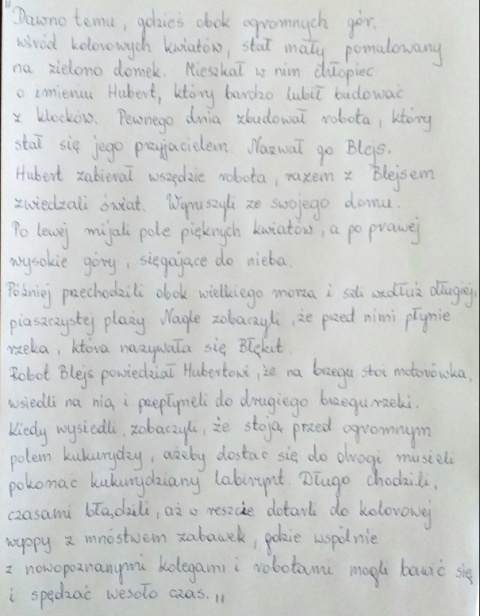 "Dawno temu, gdzieś obok ogromnych gór,
wśród kolorowych kwiatów, stał mały pomalowany
na zielono domek. Mieszkał w nim chłopiec
o imieniu Hubert, który bardzo lubił budować
z klocków. Pewnego dnia zbudował robota, który
stał się jego przyjacielem. Nazwał go Blejs.
Hubert zabierał wszędzie robota, razem z Blejsem
zwiedzali świat. Wyruszyli ze swojego domu.
Po lewej mijali pole pięknych kwiatów, a po prawej
wysokie góry, sięgające do nieba.
Później przechodzili obok wielkiego morza i szli wzdłuż długiej,
piaszczystej plaży. Nagle zobaczyli, że przed nimi płynie
rzeka, która nazywała się Błękit.
Robot Blejs powiedział Hubertowi, że na brzegu stoi motorówka,
wsiedli na nią i przepłynęli do drugiego brzegu rzeki.
Kiedy wysiedli, zobaczyli, że stoją przed ogromnym
polem kukurydzy, ażeby dostać się do drogi musieli
pokonać kukurydziany labirynt. Długo chodzili,
czasami błądzili, aż w reszcie dotarli do kolorowej
wyspy z mnóstwem zabawek, gdzie wspólnie
z nowopoznanymi kolegami i robotami mogli bawić się
i spędzać wesoło czas."